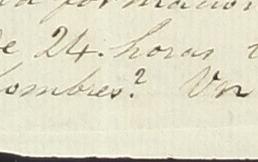 formacion
de 24. horas t
hombres? Un